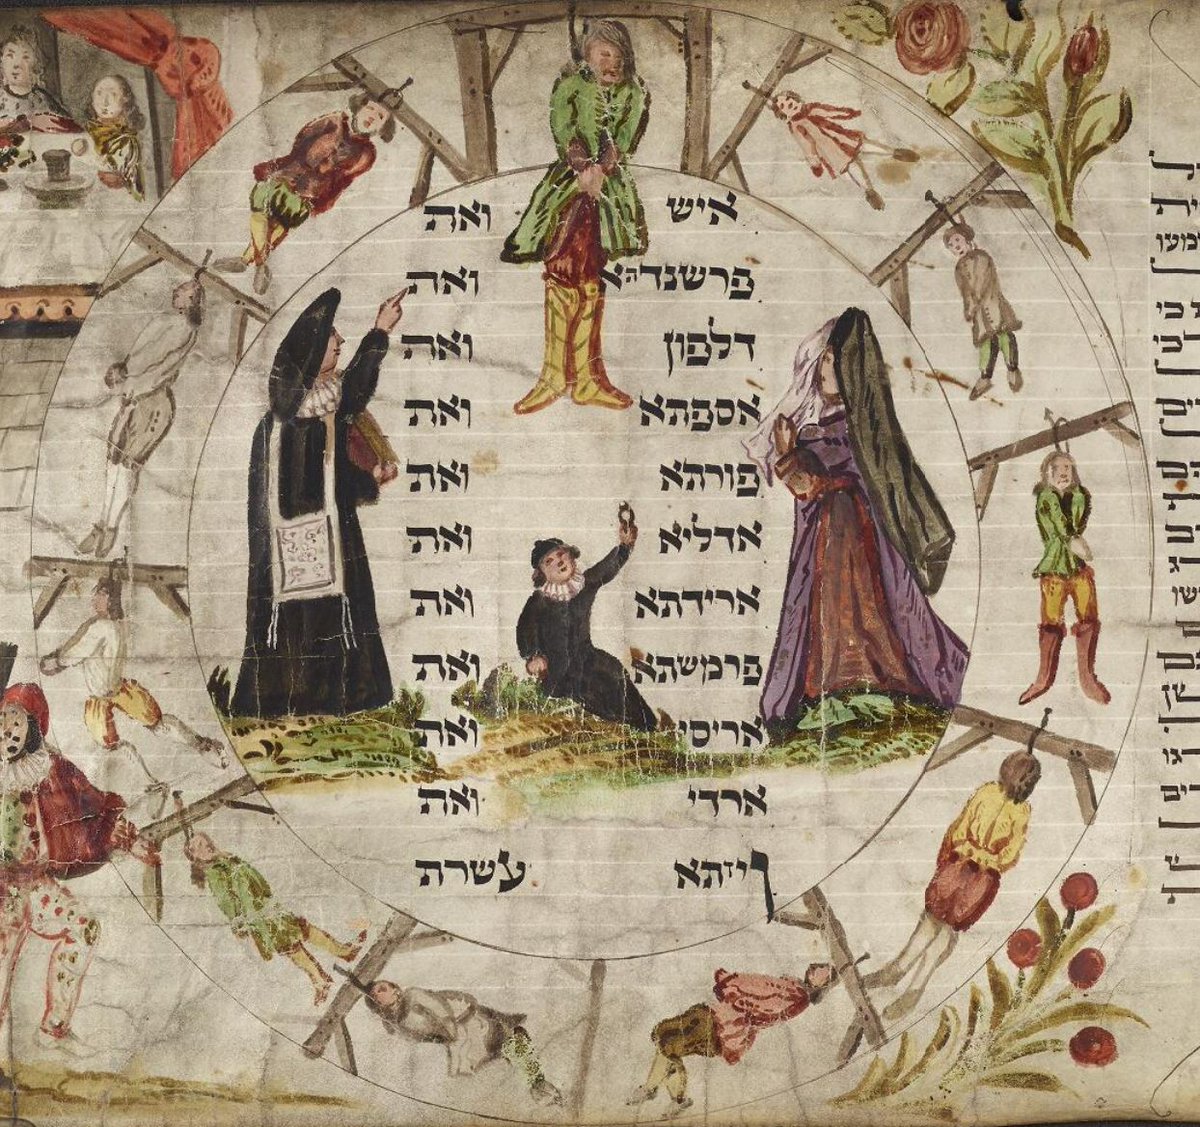 איש ואת
פרשנדתא ואת
דלפון ואת
אספתא ואת
פורתא ואת
אדליא ואת
ארידתא ואת
פרמשתא ואת
אריסי ואת
ארדי ואת
ויזתא עשרת